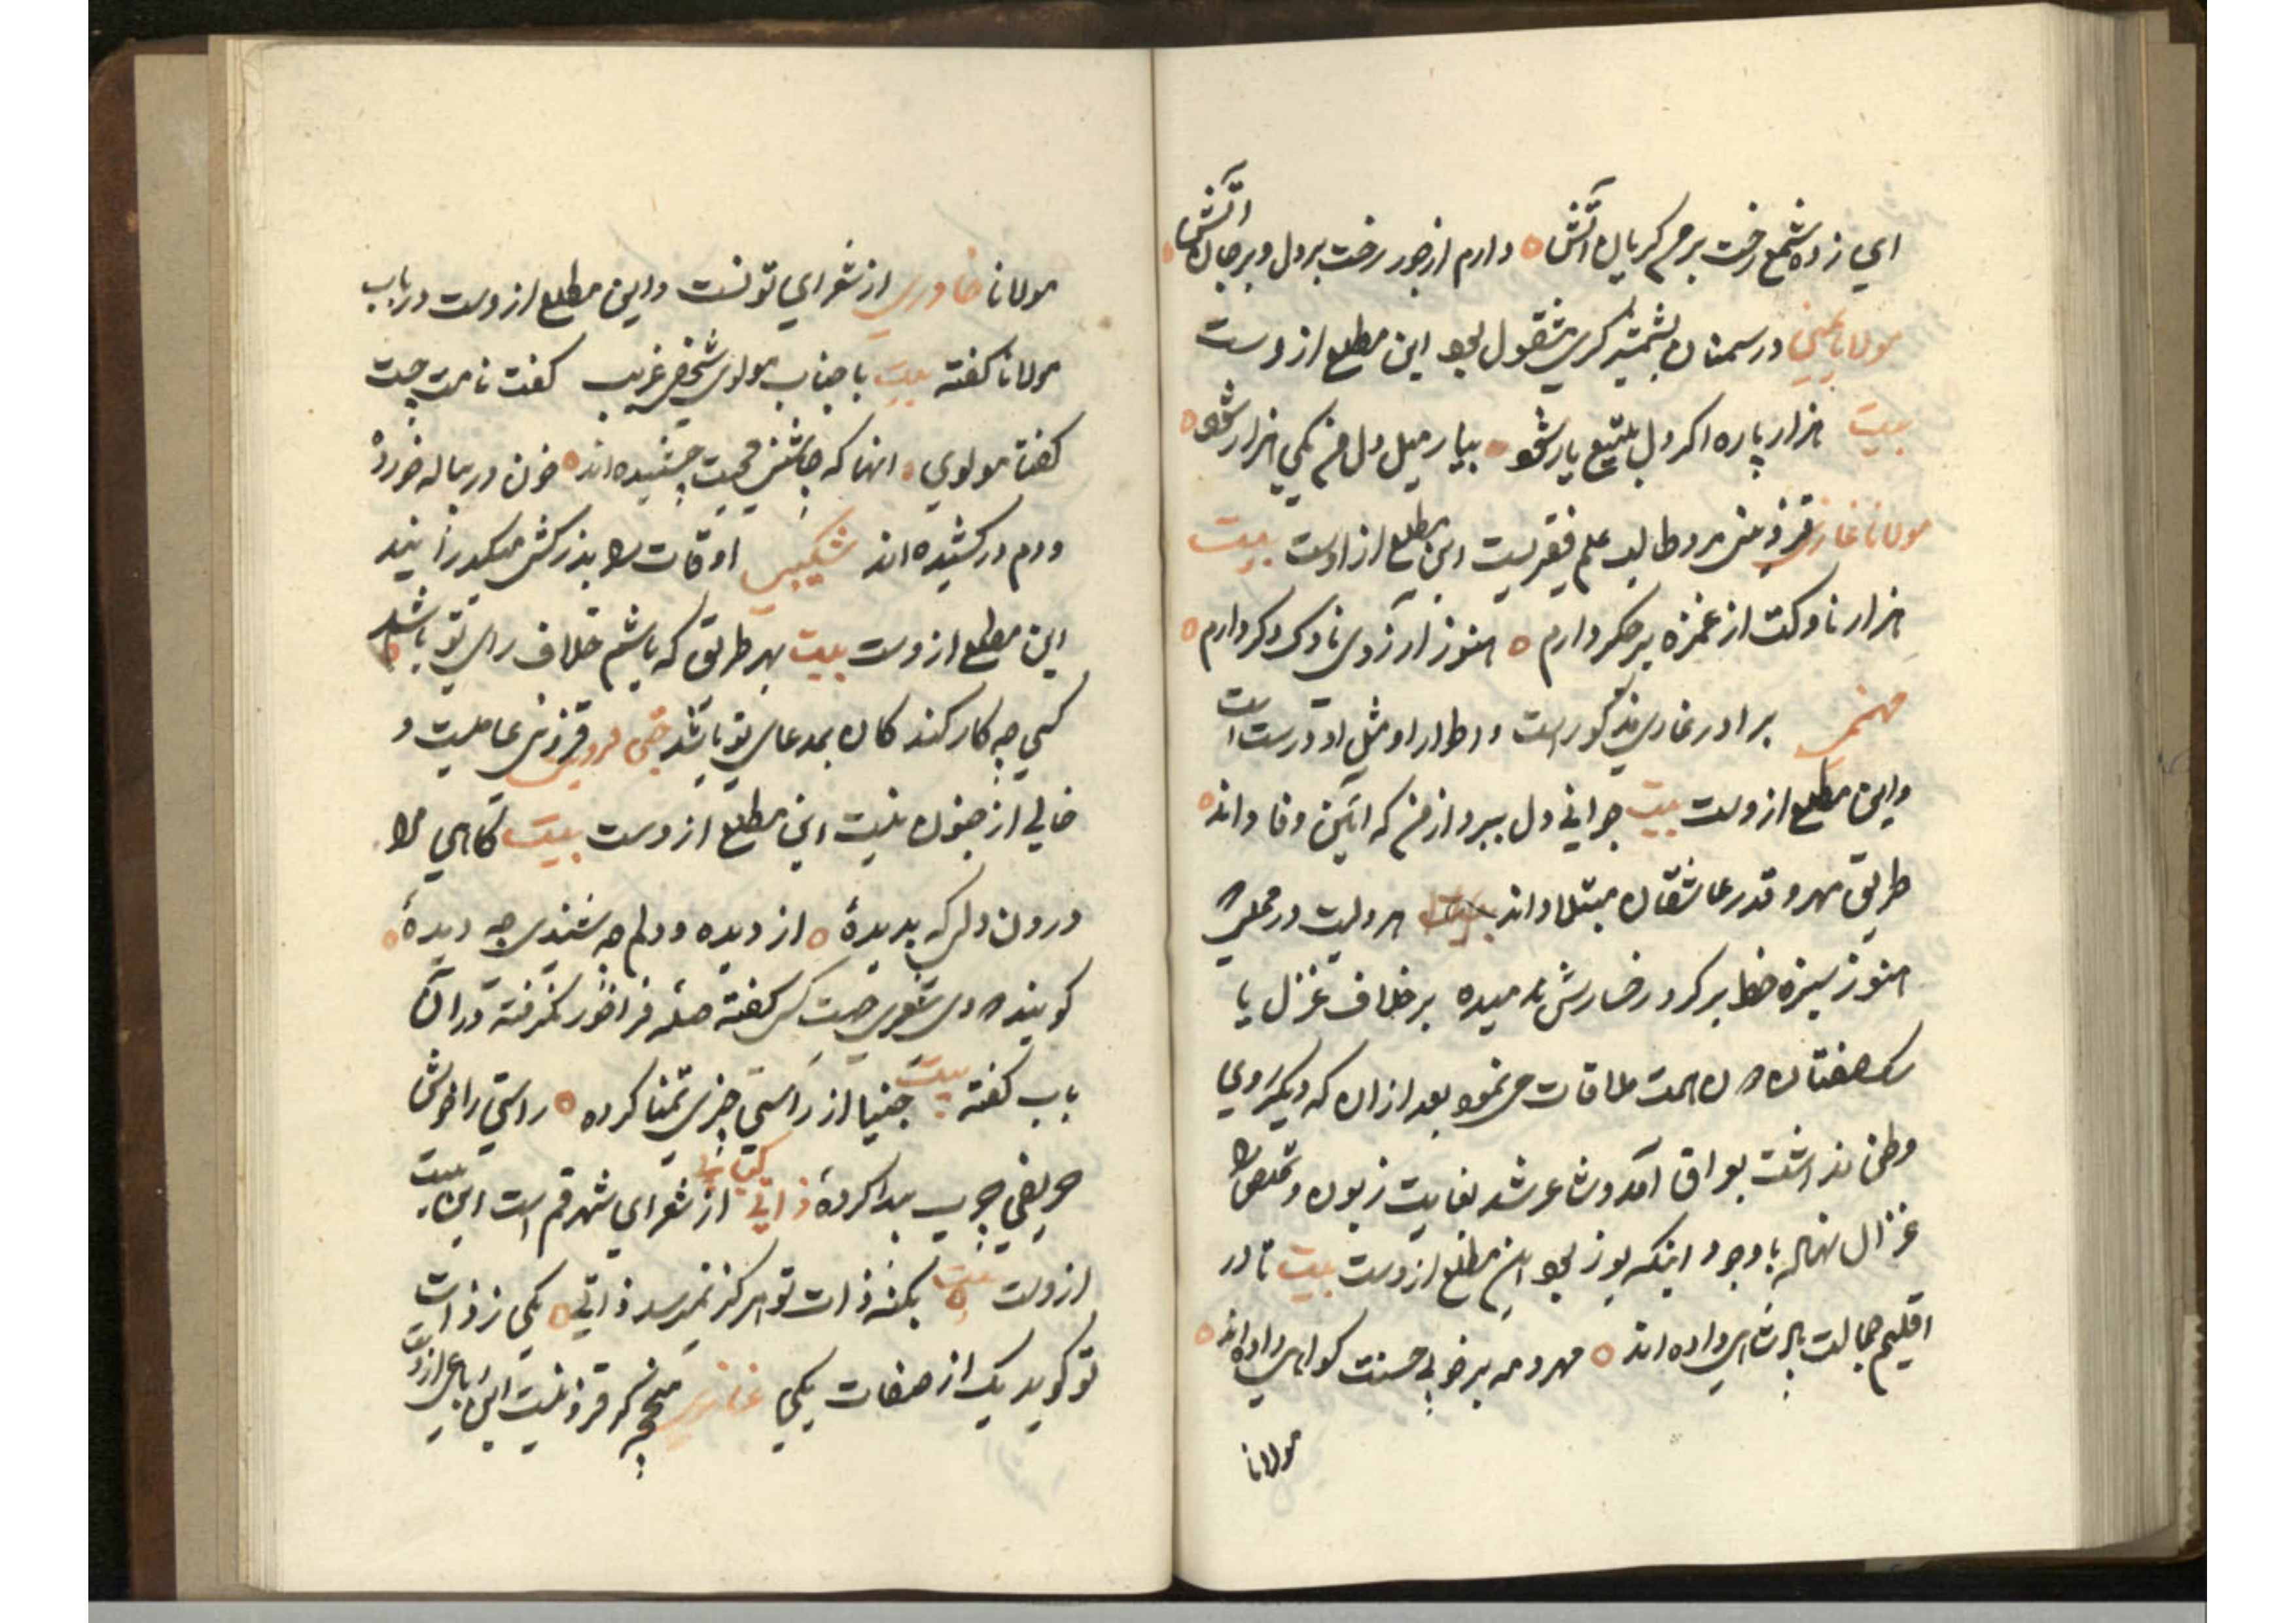 ای زده شمع رخت بر من گریان آتش دارم از جور رخت بر دل و بر جان آتش
مولانا یمینی در سمنان بشمشیر گری مشغول بود این مطلع ازوست
بیت هزار پاره اگر دل بتیغ یار شود بیار میل دل من یکی هزار شود
مولانا غازی قزوینی مرد طالب علم فقیریست این مطلع از اوست بیت
هزار ناوکت از غمزه بر جگر دارم هنوز آرزوی ناوک دگر دارم
برادر غازی مذکورست و اطوار او مثل او درست است
و این مطلع ازوست بیت جوانی دل ببرد از من که آیین وفا داند
طریق مهر و قدر عاشقان مبتلا داند در محلی
هنوز سبزه خط بر گرد رخسارش ندمیده بر خلاف غزل با
ملاقات می نمود بعد از ان که دیگر روی
وطن نداشت بعراق آمد و شاعر شد بغایت زبون و تخلص
غزال نهاد با وجود اینکه یوز بود این مطلع ازوست بیت تا در
اقلیم جمالت پادشاهی داده اند مهر و مه بر خوبی حسنت گواهی داده اند
مولانا
مولانا خاوری از شعرای تونست و این مطلع ازوست در باب
مولانا گفته بیت با جناب مولوی شخصی غریب گفت نامت چیست
گفتا مولوی انها که چاشنی محبت چشیده اند خون در پیاله خورده
و دم در کشیده اند شکیبی اوقات را بزرکشی میگذرانید
این مطلع ازوست بیت بهر طریق که باشم خلاف رای تو باشد
کسی چه کار کند کان بمدعای تو باشد قزوینی عامیست و
خالی از جنون نیست این مطلع ازوست بیت گاهی مرا
درون دلی گه بدیدهٔ از دیده و دلم چه شنیدی چه دیدهٔ
گویند وی شعری جهت کسی گفته صله فراخور نگرفته در آن
باب گفته بیت از راستی چیزی تمنا کرده راستی را خوش
حریفی چرب پیدا کردهٔ ذاتی از شعرای شهر قم است این بیت
ازوست بیت بکنه ذات تو هرگز نمیرسد ذاتی یکی ز ذات
تو گوید یک از صفات یکی غازی قزوینیست این رباعی ازوست